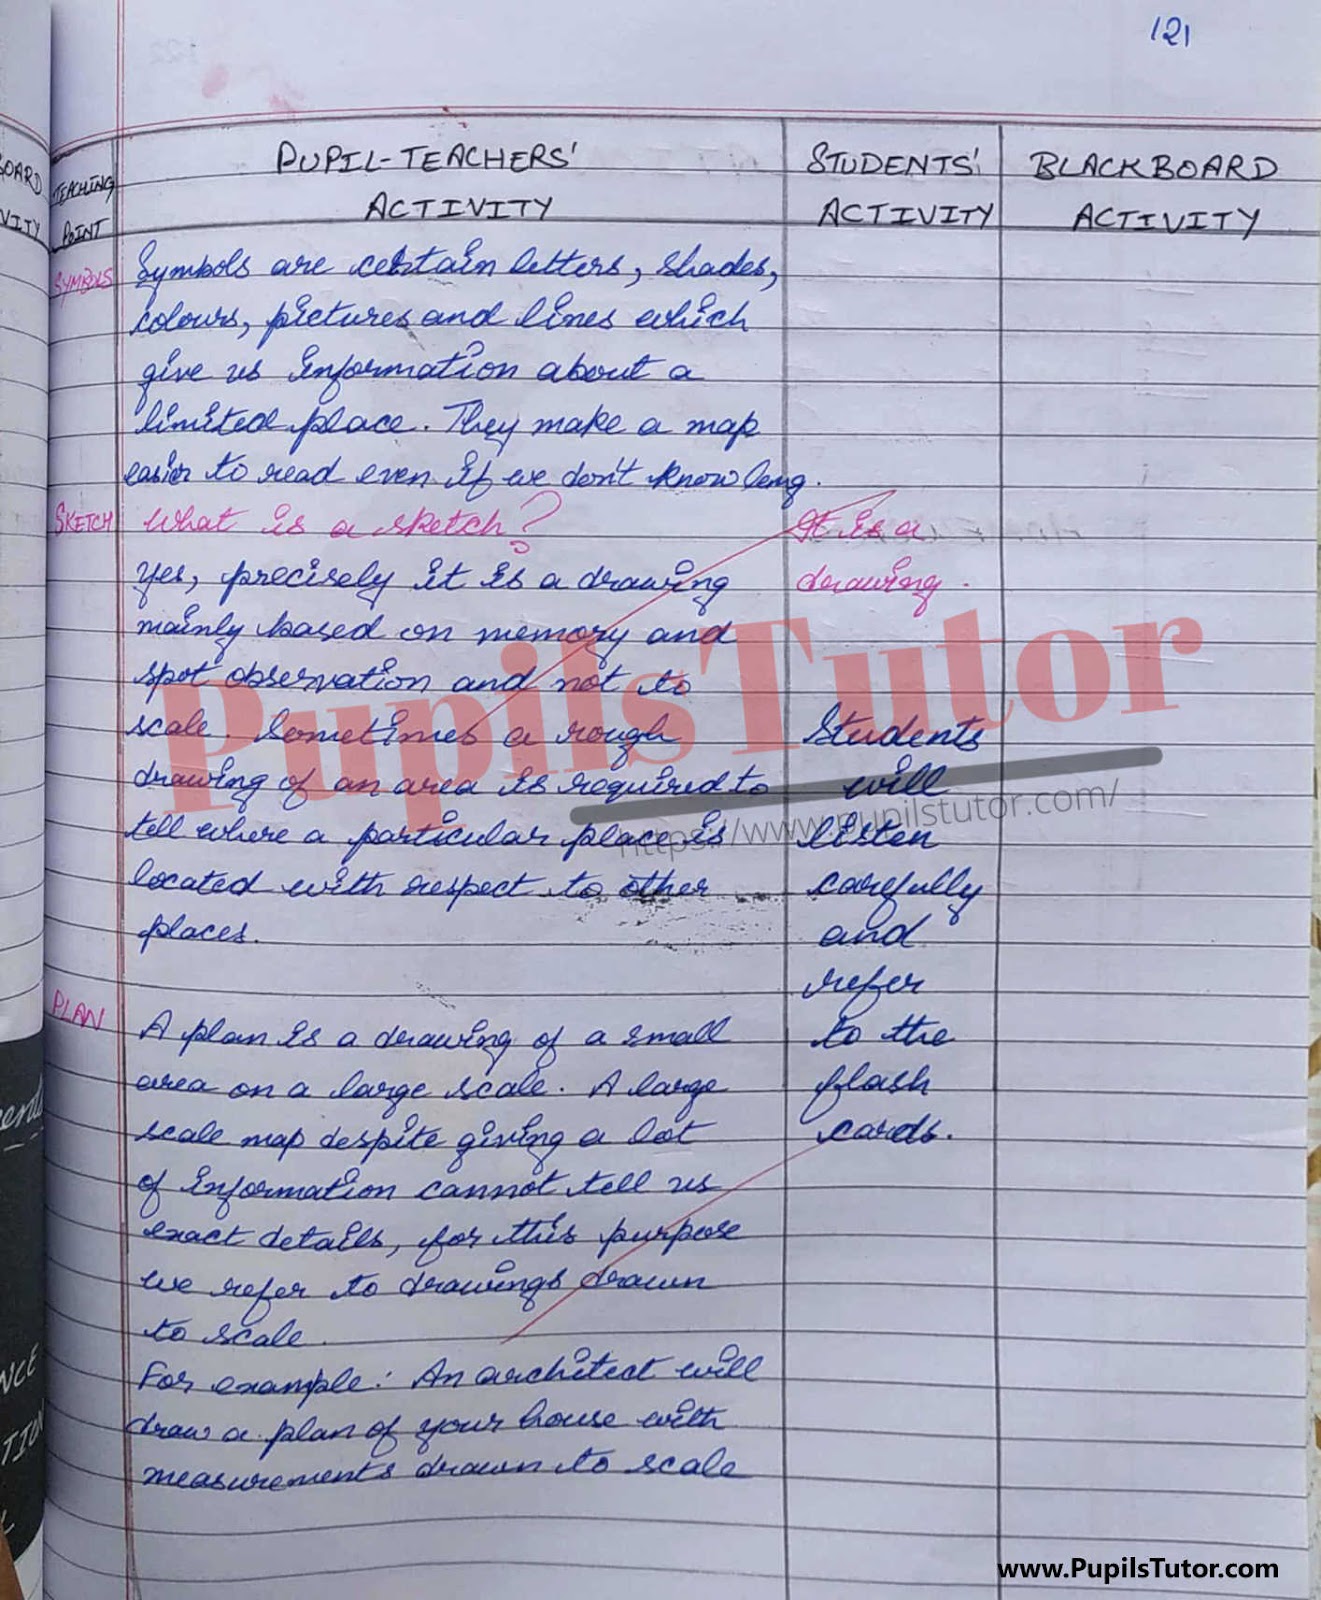 121
OARD
VITY
TEACHING
POINT
PUPIL-TEACHERS'
ACTIVITY
STUDENTS'
ACTIVITY
BLACKBOARD
ACTIVITY
SYMBOLS
Symbols are certain letters, shades,
colours, pictures and lines which
give us information about a
limited place. They make a map
easier to read even if we don't know lang.
SKETCH
What is a sketch?
It is a
drawing.
Yes, precisely it is a drawing
mainly based on memory and
spot observation and not to
scale. Sometimes a rough
drawing of an area is required to
tell where a particular place is
located with respect to other
places.
Students
will
listen
carefully
and
refer
to the
flash
cards.
PLAN
A plan is a drawing of a small
area on a large scale. A large
scale map despite giving a lot
of information cannot tell us
exact details, for this purpose
we refer to drawings drawn
to scale.
For example: An architect will
draw a plan of your house with
measurements drawn to scale
NCE
TION
PupilsTutor
https://www.pupilstutor.com/
www.PupilsTutor.com